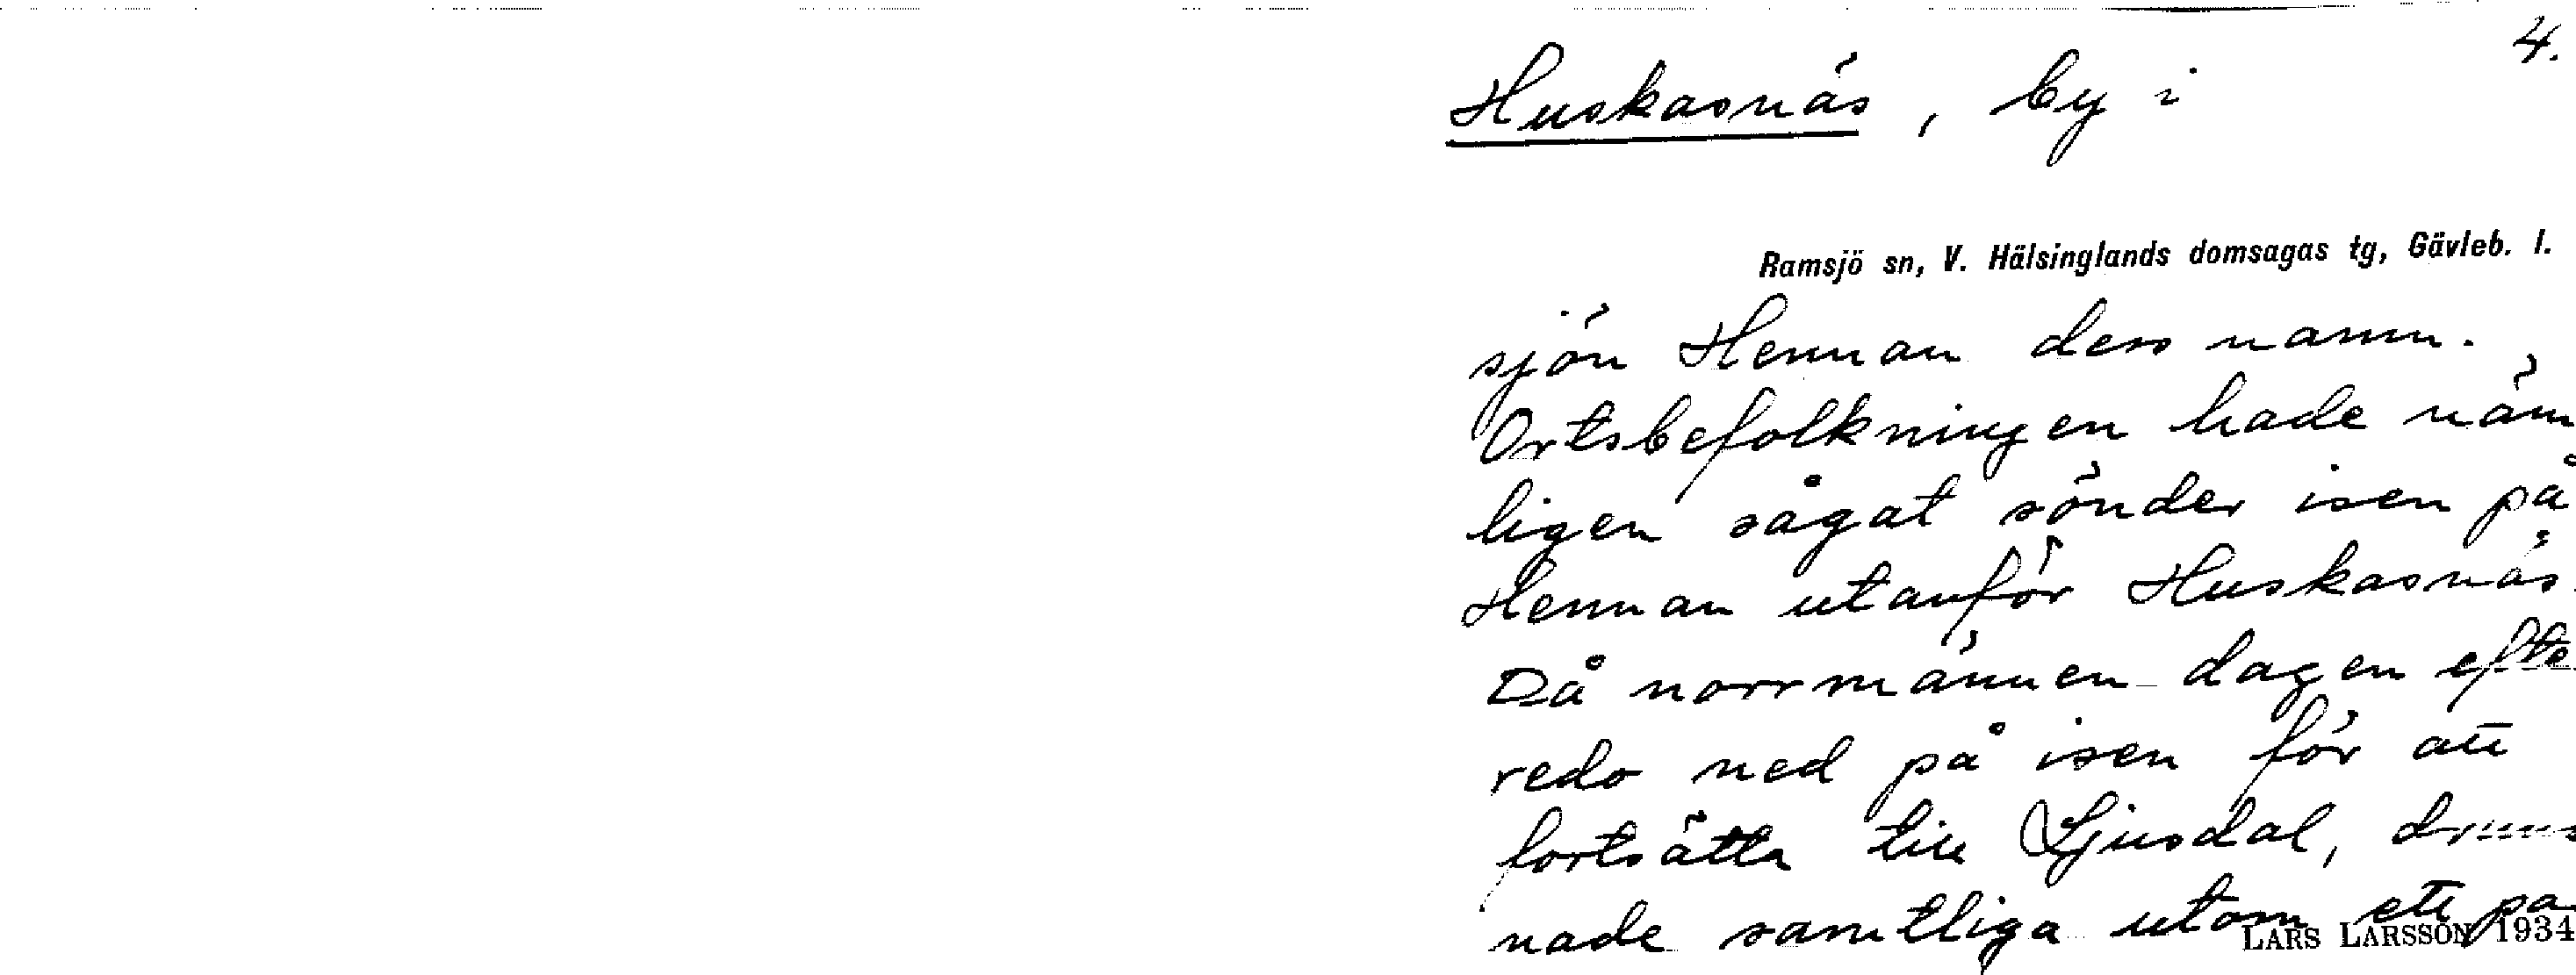 4.
Huskasnäs, by i
Ramsjö sn, V. Hälsinglands domsagas tg, Gävleb. l.
sjön Hennan dess namn.
Ortsbefolkningen hade näm
ligen sågat sönder isen på
Hennan utanför Huskasnäs.
Då norrmännen dagen efte
redo ned på isen för att
fortsätta till Ljusdal, druns
nade samtliga utom ett pa
LARS LARSSON 1934